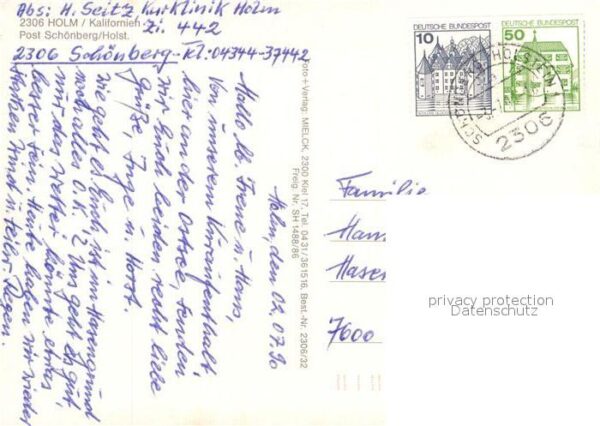 Abs: H. Seitz Kurklinik Holm
2306 HOLM / Kalifornien
Zi. 442
Post Schönberg/Holst.
2306 Schönberg - Tel: 04344-37442
Holm, den 02.07.90
Hallo lb. Irene u. Hans,
Von unserem Kuraufenthalt
hier an der Ostsee, senden
wir Euch beiden recht liebe
Grüße, Inge u. Horst
Wie geht es Euch, ist in Hasengrund
noch alles O.K.? Uns geht es gut,
nur das Wetter könnte etwas
besser sein. Heute haben wir wieder
starken Wind u. teilw. Regen.
Foto + Verlag: MIELCK, 2300 Kiel 17, Tel. 0431/361516, Best.-Nr. 2306/32
Freig. Nr. SH 1488/86
DEUTSCHE BUNDESPOST
10
DEUTSCHE BUNDESPOST
50
SCHÖNBERG, HOLSTEIN 1
2306
Familie
Han
Hasen
7600
privacy protection
Datenschutz